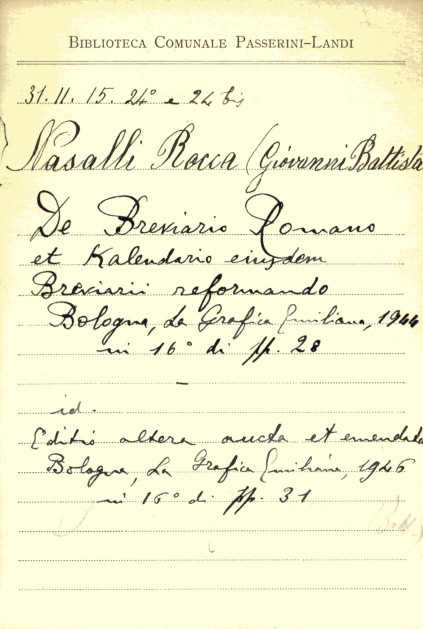 BIBLIOTECA COMUNALE PASSERINI-LANDI
31. 11. 15. 24° e 24 bis
Nasalli Rocca (Giovanni Battista
De Breviario Romano
et Kalendario eiusdem
Breviarii reformando
Bologna, La Grafica Emiliana, 1944
in 16° di pp. 28
—
id.
Editio altera aucta et emendata
Bologna, La Grafica Emiliana, 1946
in 16° di pp. 31